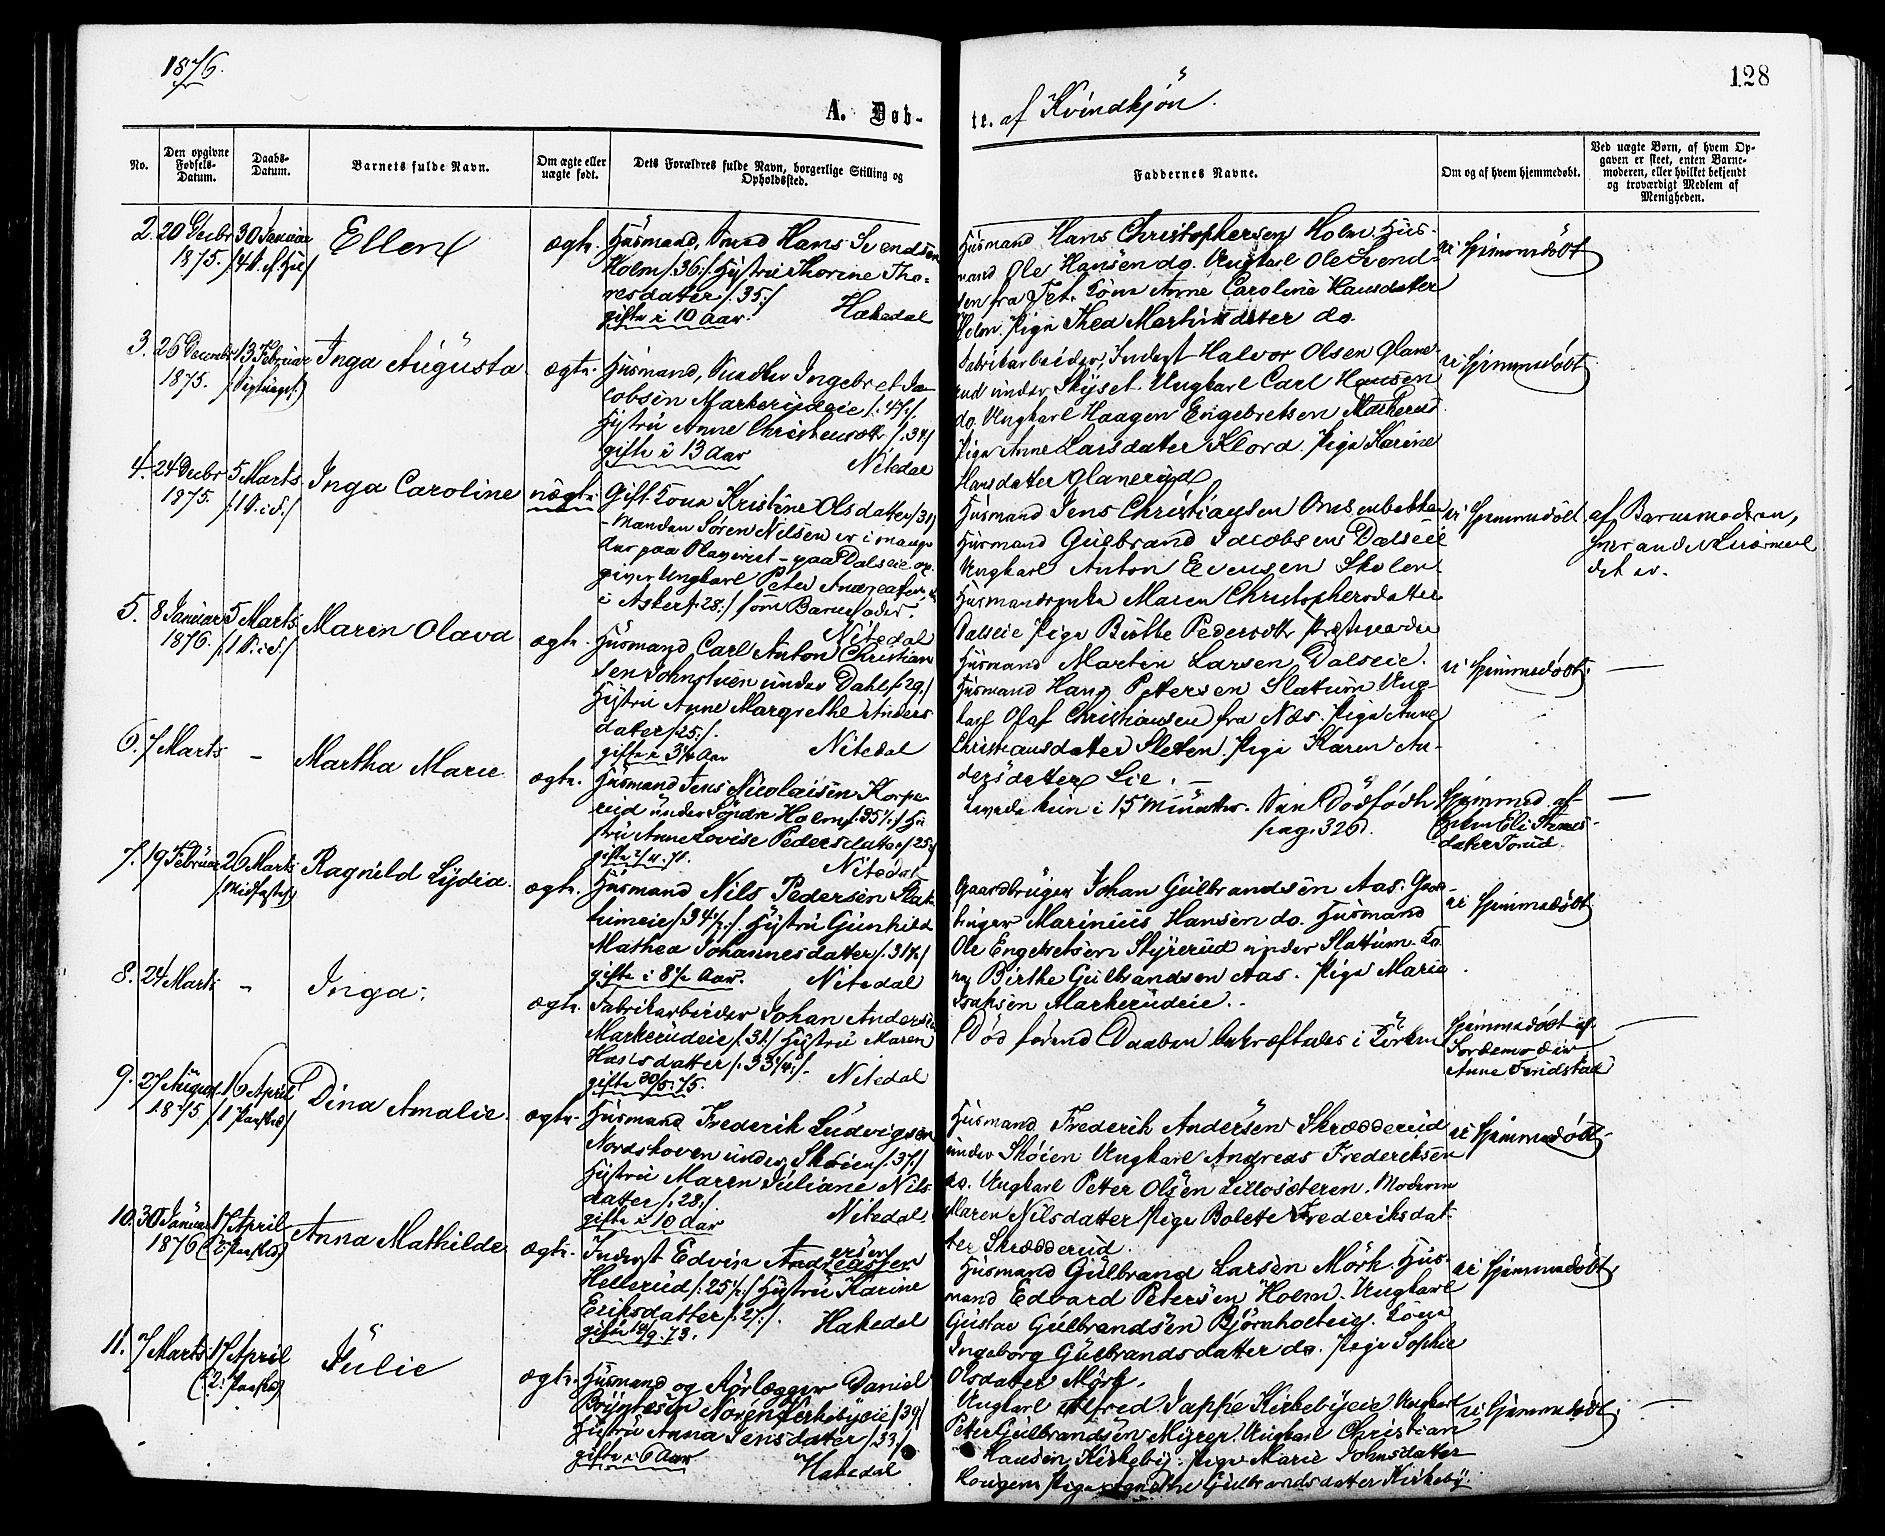 1876.
128
A. Døb-
te. af Kvindkjøn.
No.
Den opgivne Fødsels-Datum.
Daabs-Datum.
Barnets fulde Navn.
Om ægte eller uægte født.
Dets Forældres fulde Navn, borgerlige Stilling og Opholdssted.
Faddernes Navne.
Om og af hvem hjemmedøbt.
Ved uægte Børn, af hvem Op-
gaven er skeet, enten Barne-
moderen, eller hvilket bekjendt
og troværdigt Medlem af
Menigheden.
2. 20 Decbr 30 Januar Ellen ægte. Husmand, Smed Hans Svendsen
1875.
Holm /:36:/ Hustru Thorine Tho-
resdatter /:35:/
gifte i 10 Aar. Hakedal
Husmand Hans Christophersen Holm. Hus-
mand Ole Hansen do. Ungkarl Ole Svend-
sen fra Fet. Kone Anne Caroline Hansdatter
Holm. Pige Thea Martinsdatter do.
ei hjemmedøbt
3. 26 Decembr 13 Februar Inga Augusta ægte. Husmand, Snedker Ingebret Ja-
1875.
cobsen Markerudeie /:47:/
Hustru Anne Christensdtr /:34/
gifte i 13 Aar Nitedal
Fabrikarbeider, Inderst Halvor Olsen Glane-
rud under Skyset. Ungkarl Carl Hansen
do. Ungkarl Haagen Engebretsen Markerud
Pige Anne Larsdatter Flord. Pige Karine
Hansdatter Glanerud
ei hjemmedøbt
4. 24 Decbr 5 Marts Inga Caroline uægte Gift Kone Kristine Olsdatter /31/
1875. /:1 S. i F./
- Manden Søren Nilsen er i mange
Aar paa Slaveriet - paa Dalseie op-
giver Ungkarl Peter Andreasen
i Asker /:28:/ som Barnefader.
Nitedal
Husmand Jens Christiansen
Husmand Gulbrand Jacobsen Dalseie
Ungkarl Anton Evensen Skolen
Husmandspike Maren Christophersdatter
Dalseie Pige Birthe Pedersdtr
ei hjemmedøbt
af Barnemoderen,
det er.
5. 8 Januar 5 Marts Maren Olava ægte. Husmand Carl Anton Christian
1876. /:1 S. i F./
sen Johnstuen under Dahl /:29:/
Hustru Anne Margrethe Anders
datter /:25:/.
gifte i 3½ Aar Nitedal
Husmand Martin Larsen Dalseie.
Husmand Hans Petersen Slatum Ung-
karl Olaf Christiansen fra Næs. Pige Anne
Christiansdatter Sleten. Pige Karen An-
dersdatter Lie. -
ei hjemmedøbt. -
6. 7 Marts - Martha Marie ægte. Husmand Jens Nicolaisen Korpe-
rud under Søndre Holm /:35½:/ Hu
stru Anne Lovise Pedersdatter /25/
Nitedal
Levede kun i 15 Minutter. Den Dødfødte
pag. 326.
Hjemmed. af
-
7. 19 Februar 26 Marts Ragnild Lydia. ægte. Husmand Nils Pedersen Slat-
/Midfaste/
tumeie /:34½:/. Hustru Gunhild
Mathea Johannesdatter /:31½/
gifte i 8½ Aar. Nitedal
Gaardbruger Johan Gulbrandsen Aas. Gaard-
bruger Marinius Hansen do. Husmand
Ole Engebretsen Styrerud under Slattum. Ko
ne Birthe Gulbrandsen Aas. Pige Marie
Isaksen Markerudeie.
ei hjemmedøbt
8. 24 Marts - Inga. ægte. Fabrikarbeider Johan Andersen
Markerudeie /:31:/ Hustru Maren
Hansdatter /:33¼:/.
gifte 30/5.75. Nitedal
Død førend Daaben bekræftedes i Kirken
Hjemmedøbt af
Jordemoder
Anne Fridstad
9. 27 August 16 April Dina Amalie. ægte. Husmand Frederik Ludvigsen
1875 /:1 Paaske/
Nordskoven under Skøien /:37:/
Hustru Maren Juliane Nils-
datter /:28:/.
gifte i 10 Aar Nitedal
Husmand Frederik Andersen Skrædderud
under Skøien Ungkarl Andreas Frederiksen
do. Ungkarl Peter Olsen Lillosæteren. Moderen
Maren Nilsdatter Pige Bolette Frederiksdat-
ter Skrædderud.
ei hjemmedøbt
10. 30 Januar 17 April Anna Mathilde ægte. Inderst Edvin Andersen
1876 (2 Paaske)
Hellerud /:25½:/ Hustru Karine
Eriksdatter /:27:/.
Hakedal
Husmand Gulbrand Larsen Mørk. Hus-
mand Edvard Petersen Holm. Ungkarl
Gustav Gulbrandsen Bjørnholteie. Kone
Ingeborg Gulbrandsdatter do. Pige Sophie
Olsdatter Mørk.
ei hjemmedøbt.
11. 7 Marts 17 April Julie ægte. Husmand og Rørlægger Daniel
(2. Paaske)
Norén Kirkebyeie /39/
Hustru Anna Jensdatter /:33/.
gifte i 6 Aar Hakedal
Ungkarl Alfred Jappé Kirkebyeie Ungkarl
Peter Gulbrandsen Myrer. Ungkarl Christian
Hansen Kirkeby. Pige Marie Johnsdatter
Haugen. Pige Agnethe Gulbrandsdatter Kirkeby.
ei hjemmedøbt. -